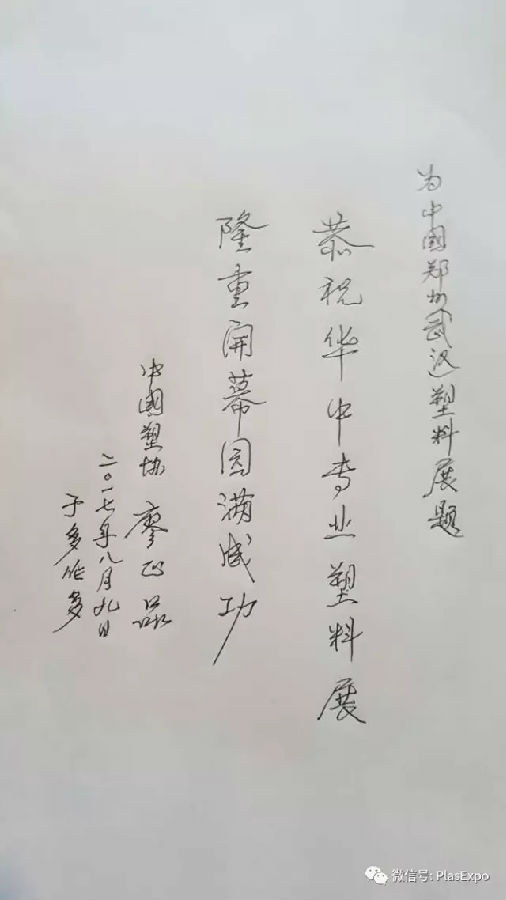 为中國郑州武汉塑料展题
恭祝华中专业塑料展
隆重开幕圆满成功
中國塑协 廖正品
二〇一七年八月九日
于多伦多
微信号: PlasExpo